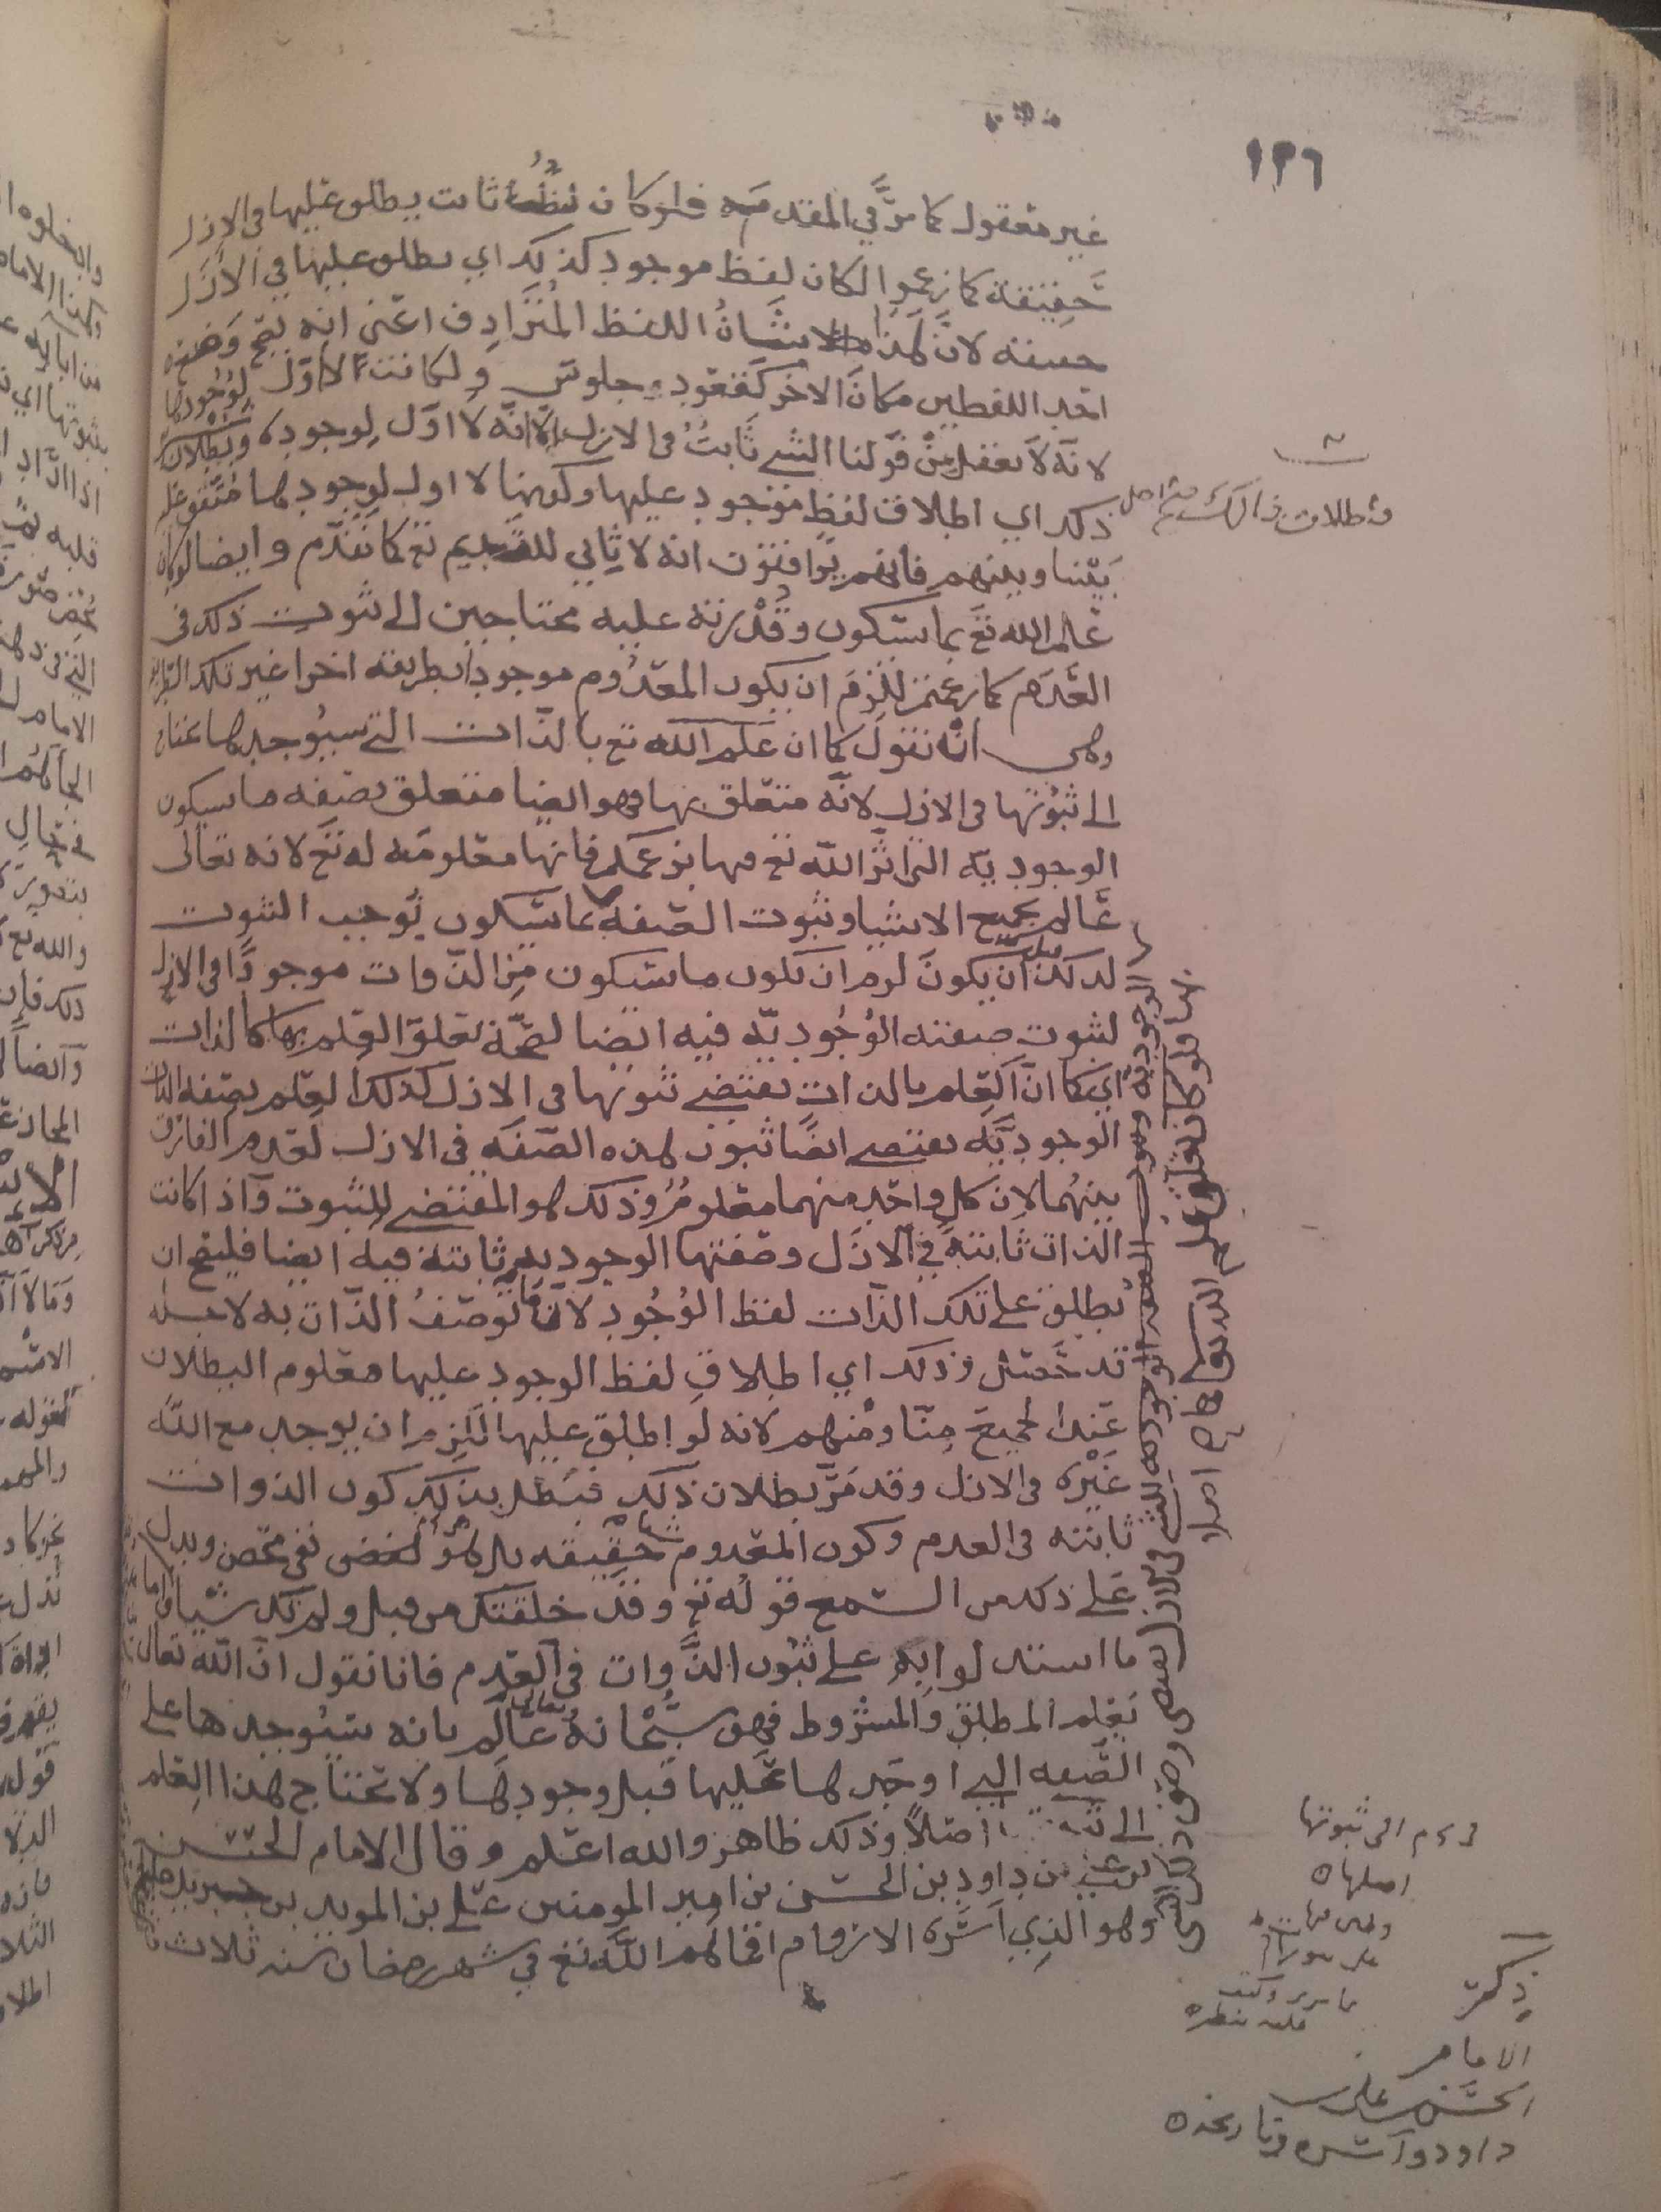 ١٢٦
غير معقول كما مرَّ في المقدمه فلو كان لفظُ ثابت يطلق عليها في الازل
حَقيقة كما زعموا لكان لفظ موجود كذلك اي يطلق عليها في الأزَل
حقيقة لانَّ هذا شَانُ اللفظ المُترَادِف اعني انه يصح وَضع
احد اللفظين مكانَ الاخر كقعود وجلوس ولكانت لا اوّل لِوُجُودها
لانه لا يعقل مِنْ قَولنا الشي ثَابتٌ في الازل الّا انّه لا اوّل لِوجوده وبُطْلان
ذلك اي اطلاق لفظ موجود عليها وكونها لا اول لِوجودها مُتّفق عليه
بَيْننا وبينهم فانهم يوَافقون انه لا ثاني للقديم تع كما تَقَدّم وايضا لو كان
عَالم الله تعَ بما سَيَكون وقُدْرته عليه محتاجين الى ثبوت ذلك في
العَدَم كما زعمتم للزِمَ ان يكون المعدُوم موجودًا بطريقه اخرا غير تلك الطريقة
وهي انّه نقولَ كما ان عَلم الله تع بالذّات التي سيُوجدها محتاج
الى ثبُوتها في الازل لانّه متعَلق بها فهو ايضا متعلق بصفه ما سيكون
الوجوديّه التي اثّر اللّه تع فيها بزعمكم فانها معلومَه له تعَ لانه تعالى
عَالم بجميع الاشيا وثبوت الصّفه بما سَيكون يُوجب الثبوت
لذلك ان يكونَ لزم ان يكون ما سَيكون مِنَ الذّوات موجودًا في الازل
لثبوت صفته الوُجُوديّه فيه ايضا لصِحّة تعَلق العِلم بها كالذات
اي كما انَّ العِلم بالذات يقتضي ثبوتها في الازل كذلك العِلم بصفه الذات
الوجوديَّه يقتضي ايضًا ثبوت هذه الصّفَه في الازل لعَدم الفارق
بينهُما لان كل واحد منهما معلومٌ وذلك هو المقتضي للثبوت وَاذا كانت
الذات ثابتةً في الازَل وصفتها الوجوديه ثابتة فيه ايضا فليصح ان
يُطلق على تلك الذّات لفظ الوُجُود لانَّ ما تُوصَفُ الذّات به لاجله
قد حَصَل وذلك اي اطلاق لفظ الوجود عليها معلوم البطلان
عَند الجميعَ مِنّا ومنهم لانه لو اطلق عليها للزم ان يوجد مع اللّه
غَيْره في الازل وقد مَرَّ بطلان ذلك فبَطل بذلك كون الذوات
ثابتة في العدم وكون المعدوم شيا حَقِيقه بل هو نفي محض ويدل
عَلى ذلك من السّمع قولُه تع وقد خلقتك من قبل ولم تك شيا واما
ما استدلوا به على ثبُوت الذَّوات في العَدم فانا نقول انّ اللّه تعالى
يَعْلم المطلق وَالمشروط فهو سُبْحَانهُ وتعالى عَالم بانه سَيُوجدها على
الصّفه التي اوجَدها عَليها قبل وجودهَا ولا تحتاج هذا العِلم
الى اصلًا وذلك ظاهر والله اعلم وقال الامام الحسَن
بن علي بن داود بن الحسَن بن امير المومنين عَلي بن المويد بن جبريل
وهو الذي اَسَره الاروام اقماهم اللَّه تع في شهر رمضان سنه ثلاث
واطلاق ذالك
بها فلو كان تعلق علم الله تعالى
الى ثبوتها
اصلها
ذكره
الامام
الحسَن بن علي بن
داود واسره وتاريخه